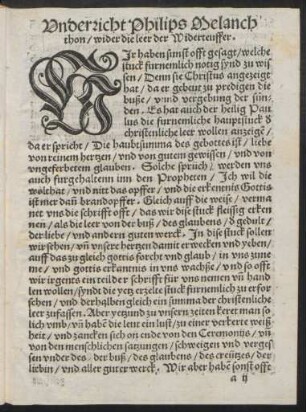 Vnderricht Philips Melanch
thon / wider die leer der Widerteuffer.
WIr haben sunst offt gesagt / welche
stuck furnemlich nötig synd zu wis
sen / Denn sie Christus angezeigt
hat / da er gebeut zu predigen die
buße / vnnd vergebung der sün-
den. Es hat auch der heilig Pau
lus die furnemliche hauptstuck d
christenliche leer wollen anzeigē /
da er spricht / Die haubtsumma des gebottes ist / liebe
von reinem hertzen / vnd von gutem gewissen / vnd von
vngeferbetem glauben. Solche spruch werden vns
auch furgehaltenn inn den Propheten / Ich wil die
wolthat / vnd nitt das opffer / vnd die erkenenis Gottis
ist mer dañ brandopffer. Gleich auff die weise / verma
net vns die schrifft offt / das wir dise stuck fleissig erken
nen / als die leer von der buß / des glaubens / d gedult /
der liebe / vnd andern guten werck. In dise stuck sollen
wir sehen / vñ vnsere hertzen damit erwecken vnd yeben /
auff das zu gleich gottis forcht vnd glaub / in vns zune
me / vnd gottis erkantnis in vns wachße / vnd so offt
wir irgents ein teil der schrifft für vns nemen vñ hand
len wollen / synds die yetz erzelte stuck furnemlich zu erfor
schen / vnd derhalben gleich ein summa der christenliche
leer zufassen. Aber yetzund zu vnsern zeiten keret man so
lich vmb / vñ habē die leut ein lust / zu einer verkerte weiß
heit / vnd zancken sich on end von den Ceremontis / vñ
von den menschlichen satzungen / schweigen vnd verges
sen vnder des / der buß / des glaubens / des creützes / der
liebin / vnd aller guter werck. Wir aber habē sonst offt
a ij